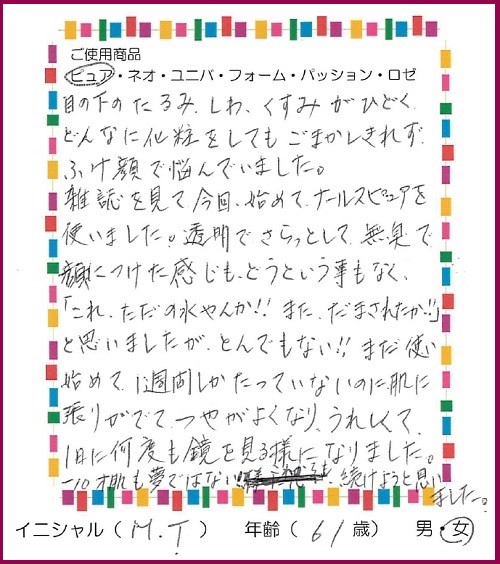 ご使用商品
ピュア・ネオ・ユニバ・フォーム・パッション・ロゼ
目の下のたるみ、しわ、くすみがひどく
どんなに化粧をしてもごまかしきれず、
ふけ顔で悩んでいました。
雑誌を見て今回、始めて、ナールスピュアを
使いました。透明でさらっとして、無臭で
顔につけた感じも、どうという事もなく、
「これ、ただの水やんか!! また、だまされたか!!」
と思いましたが、とんでもない!! まだ使い
始めて、1週間しかたっていないのに、肌に
張りがでて、つやがよくなり、うれしくて、
1日に何度も鏡を見る様になりました。
-10才肌も夢ではない 続けようと思い
ました。
イニシャル ( M.T ) 年齢 ( 61 歳) 男・女